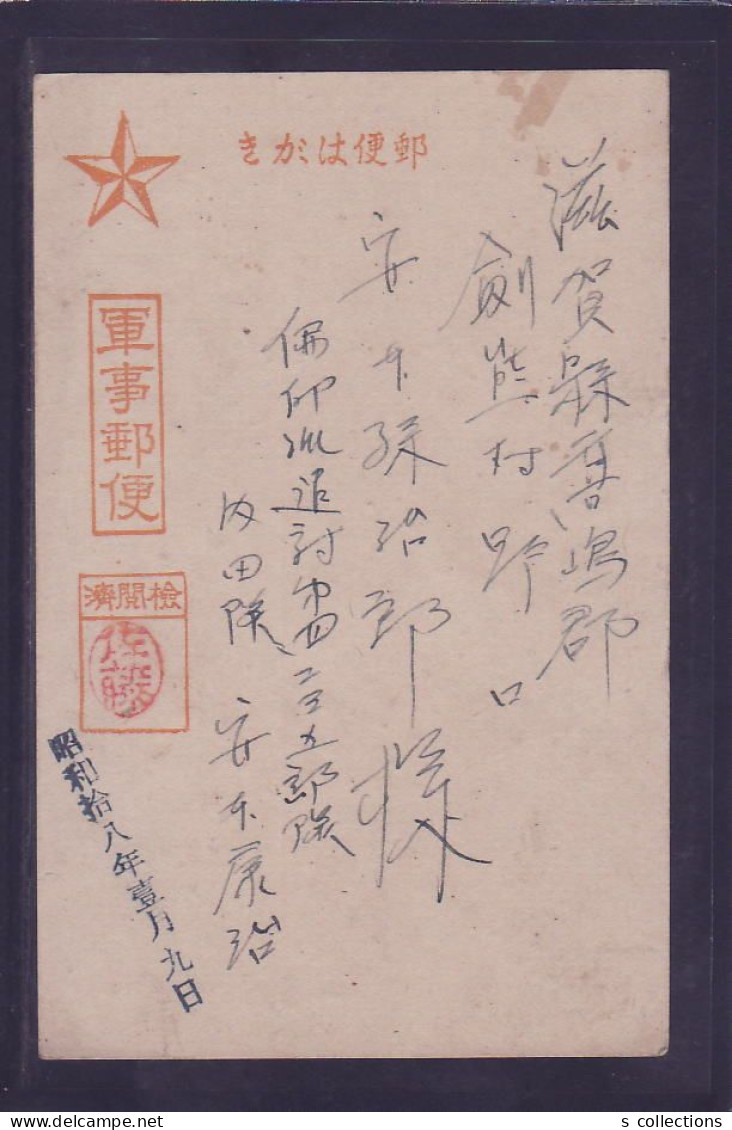 郵便はがき
滋賀縣高嶋郡
劍熊村野口
安本孫治郎様
佛印派遣討第四二三五部隊
内田隊 安本康治
軍事郵便
檢閲濟
佐藤
昭和拾八年壹月九日
s collections